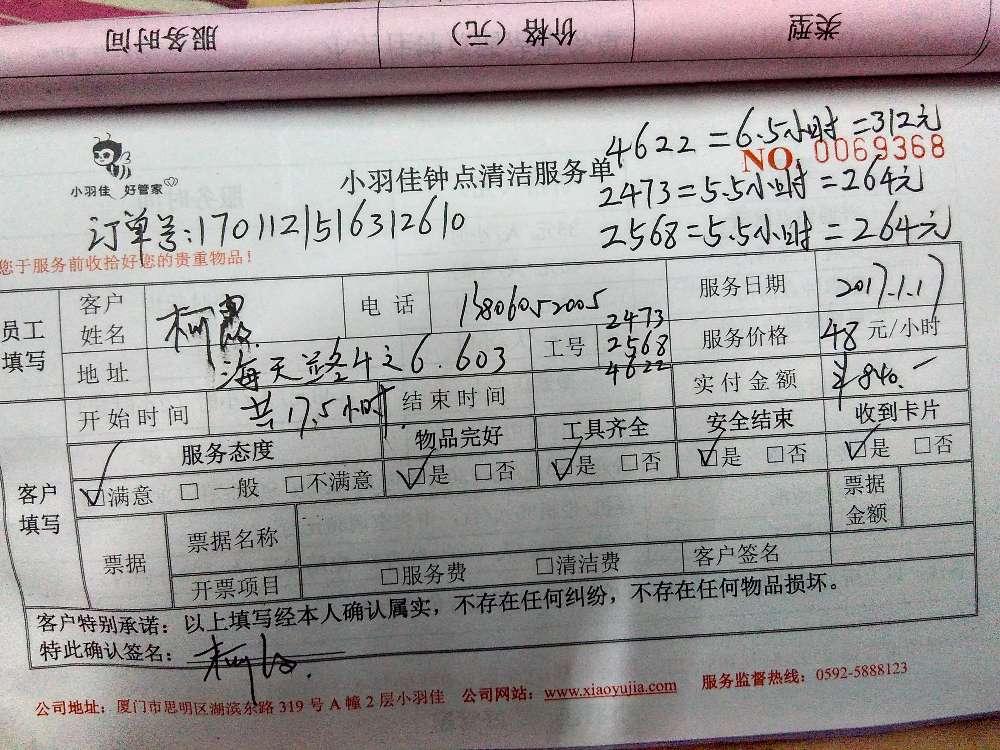 类型 价格（元） 服务时间
4622=6.5小时=312元
小羽佳 好管家
小羽佳钟点清洁服务单
NO. 0069368
2473=5.5小时=264元
订单号:170112151631​2610
2568=5.5小时=264元
您于服务前收拾好您的贵重物品！
员工填写 客户姓名 柯 电话 13806052005 服务日期 2017.1.17
地址 海天路4之6.603 工号 2473 2568 4622 服务价格 48元/小时
开始时间 共17.5小时 结束时间 实付金额 ¥840.-
客户填写 服务态度 物品完好 工具齐全 安全结束 收到卡片
☑满意 □一般 □不满意 ☑是 □否 ☑是 □否 ☑是 □否 ☑是 □否
票据 票据名称 票据金额
开票项目 □服务费 □清洁费 客户签名
客户特别承诺：以上填写经本人确认属实，不存在任何纠纷，不存在任何物品损坏。
特此确认签名： 柯
公司地址：厦门市思明区湖滨东路319号A幢2层小羽佳 公司网站：www.xiaoyujia.com 服务监督热线：0592-5888123